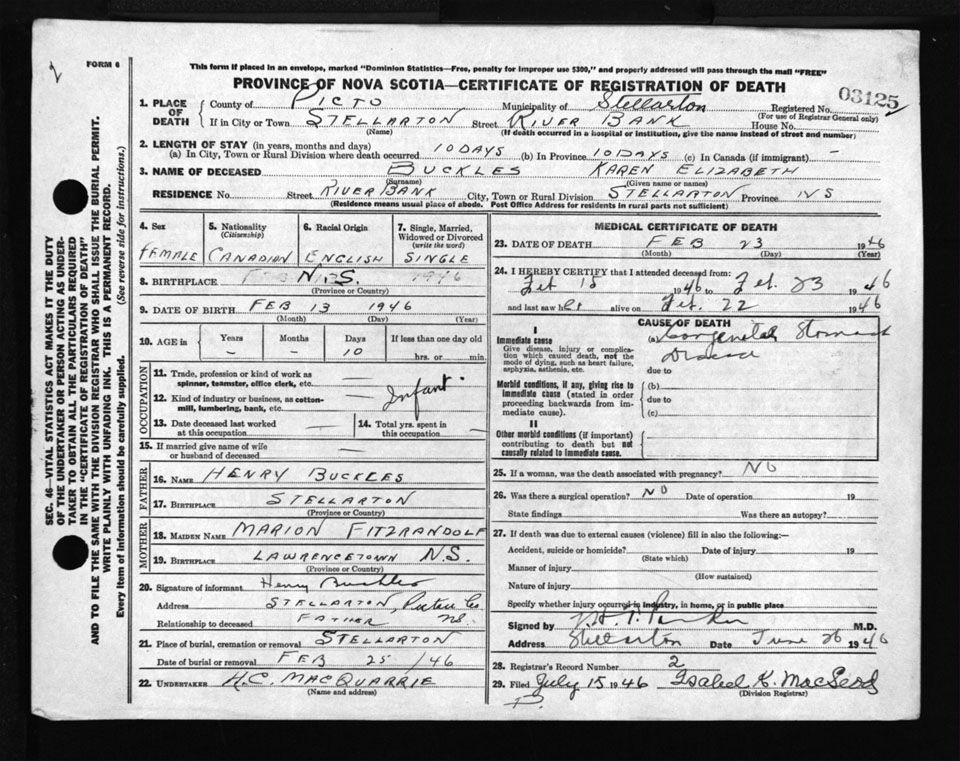 FORM 6
2
This form if placed in an envelope, marked "Dominion Statistics—Free, penalty for improper use $300," and properly addressed will pass through the mail "FREE"
PROVINCE OF NOVA SCOTIA—CERTIFICATE OF REGISTRATION OF DEATH
03125
1. PLACE OF DEATH County of PICTO Municipality of Stellarton Registered No.
(For use of Registrar General only)
If in City or Town STELLARTON Street RIVER BANK House No.
(Name) (If death occurred in a hospital or institution, give the name instead of street and number)
2. LENGTH OF STAY (in years, months and days)
(a) In City, Town or Rural Division where death occurred 10 DAYS (b) In Province 10 DAYS (c) In Canada (if immigrant) —
3. NAME OF DECEASED BUCKLES KAREN ELIZABETH
(Surname) (Given name or names)
RESIDENCE No. Street RIVER BANK City, Town or Rural Division STELLARTON Province NS
(Residence means usual place of abode. Post Office Address for residents in rural parts not sufficient)
4. Sex 5. Nationality (Citizenship) 6. Racial Origin 7. Single, Married, Widowed or Divorced (write the word)
FEMALE CANADIAN ENGLISH SINGLE
8. BIRTHPLACE N.S. 1946
(Province or Country)
9. DATE OF BIRTH FEB 13 1946
(Month) (Day) (Year)
10. AGE in Years Months Days If less than one day old
— — 10 hrs. or min.
OCCUPATION
11. Trade, profession or kind of work as spinner, teamster, office clerk, etc. —
12. Kind of industry or business, as cotton-mill, lumbering, bank, etc. — Infant
13. Date deceased last worked at this occupation — 14. Total yrs. spent in this occupation —
15. If married give name of wife or husband of deceased —
FATHER
16. NAME HENRY BUCKLES
17. BIRTHPLACE STELLARTON
(Province or Country)
MOTHER
18. MAIDEN NAME MARION FITZRANDOLF
19. BIRTHPLACE LAWRENCETOWN N.S.
(Province or Country)
20. Signature of informant Henry Buckles
Address STELLARTON, Pictou Co NS.
Relationship to deceased FATHER
21. Place of burial, cremation or removal STELLARTON
Date of burial or removal FEB 25 /46
22. UNDERTAKER H.C. MACQUARRIE
(Name and address)
MEDICAL CERTIFICATE OF DEATH
23. DATE OF DEATH FEB 23 1946
(Month) (Day) (Year)
24. I HEREBY CERTIFY that I attended deceased from:
Feb 15 1946 to Feb. 23 1946
and last saw her alive on Feb. 22 1946
CAUSE OF DEATH
I
Immediate cause
Give disease, injury or complication which caused death, not the mode of dying, such as heart failure, asphyxia, asthenia, etc.
(a) Congenital Stomach
Disease
due to
Morbid conditions, if any, giving rise to immediate cause (stated in order proceeding backwards from immediate cause).
(b)
due to
(c)
II
Other morbid conditions (if important) contributing to death but not causally related to immediate cause.
25. If a woman, was the death associated with pregnancy? NO
26. Was there a surgical operation? NO Date of operation 19
State findings Was there an autopsy?
27. If death was due to external causes (violence) fill in also the following:—
Accident, suicide or homicide? Date of injury 19
(State which)
Manner of injury
(How sustained)
Nature of injury
Specify whether injury occurred in industry, in home, or in public place
Signed by H. T. Parker M.D.
Address Stellarton Date June 26 1946
28. Registrar's Record Number 2
29. Filed July 15 1946 Isabel K. MacLeod
(Division Registrar)
SEC. 46—VITAL STATISTICS ACT MAKES IT THE DUTY
OF THE UNDERTAKER OR PERSON ACTING AS UNDER-
TAKER TO OBTAIN ALL THE PARTICULARS REQUIRED
IN THE "CERTIFICATE OF REGISTRATION OF DEATH"
AND TO FILE THE SAME WITH THE DIVISION REGISTRAR WHO SHALL ISSUE THE BURIAL PERMIT.
WRITE PLAINLY WITH UNFADING INK. THIS IS A PERMANENT RECORD.
Every item of information should be carefully supplied. (See reverse side for instructions.)